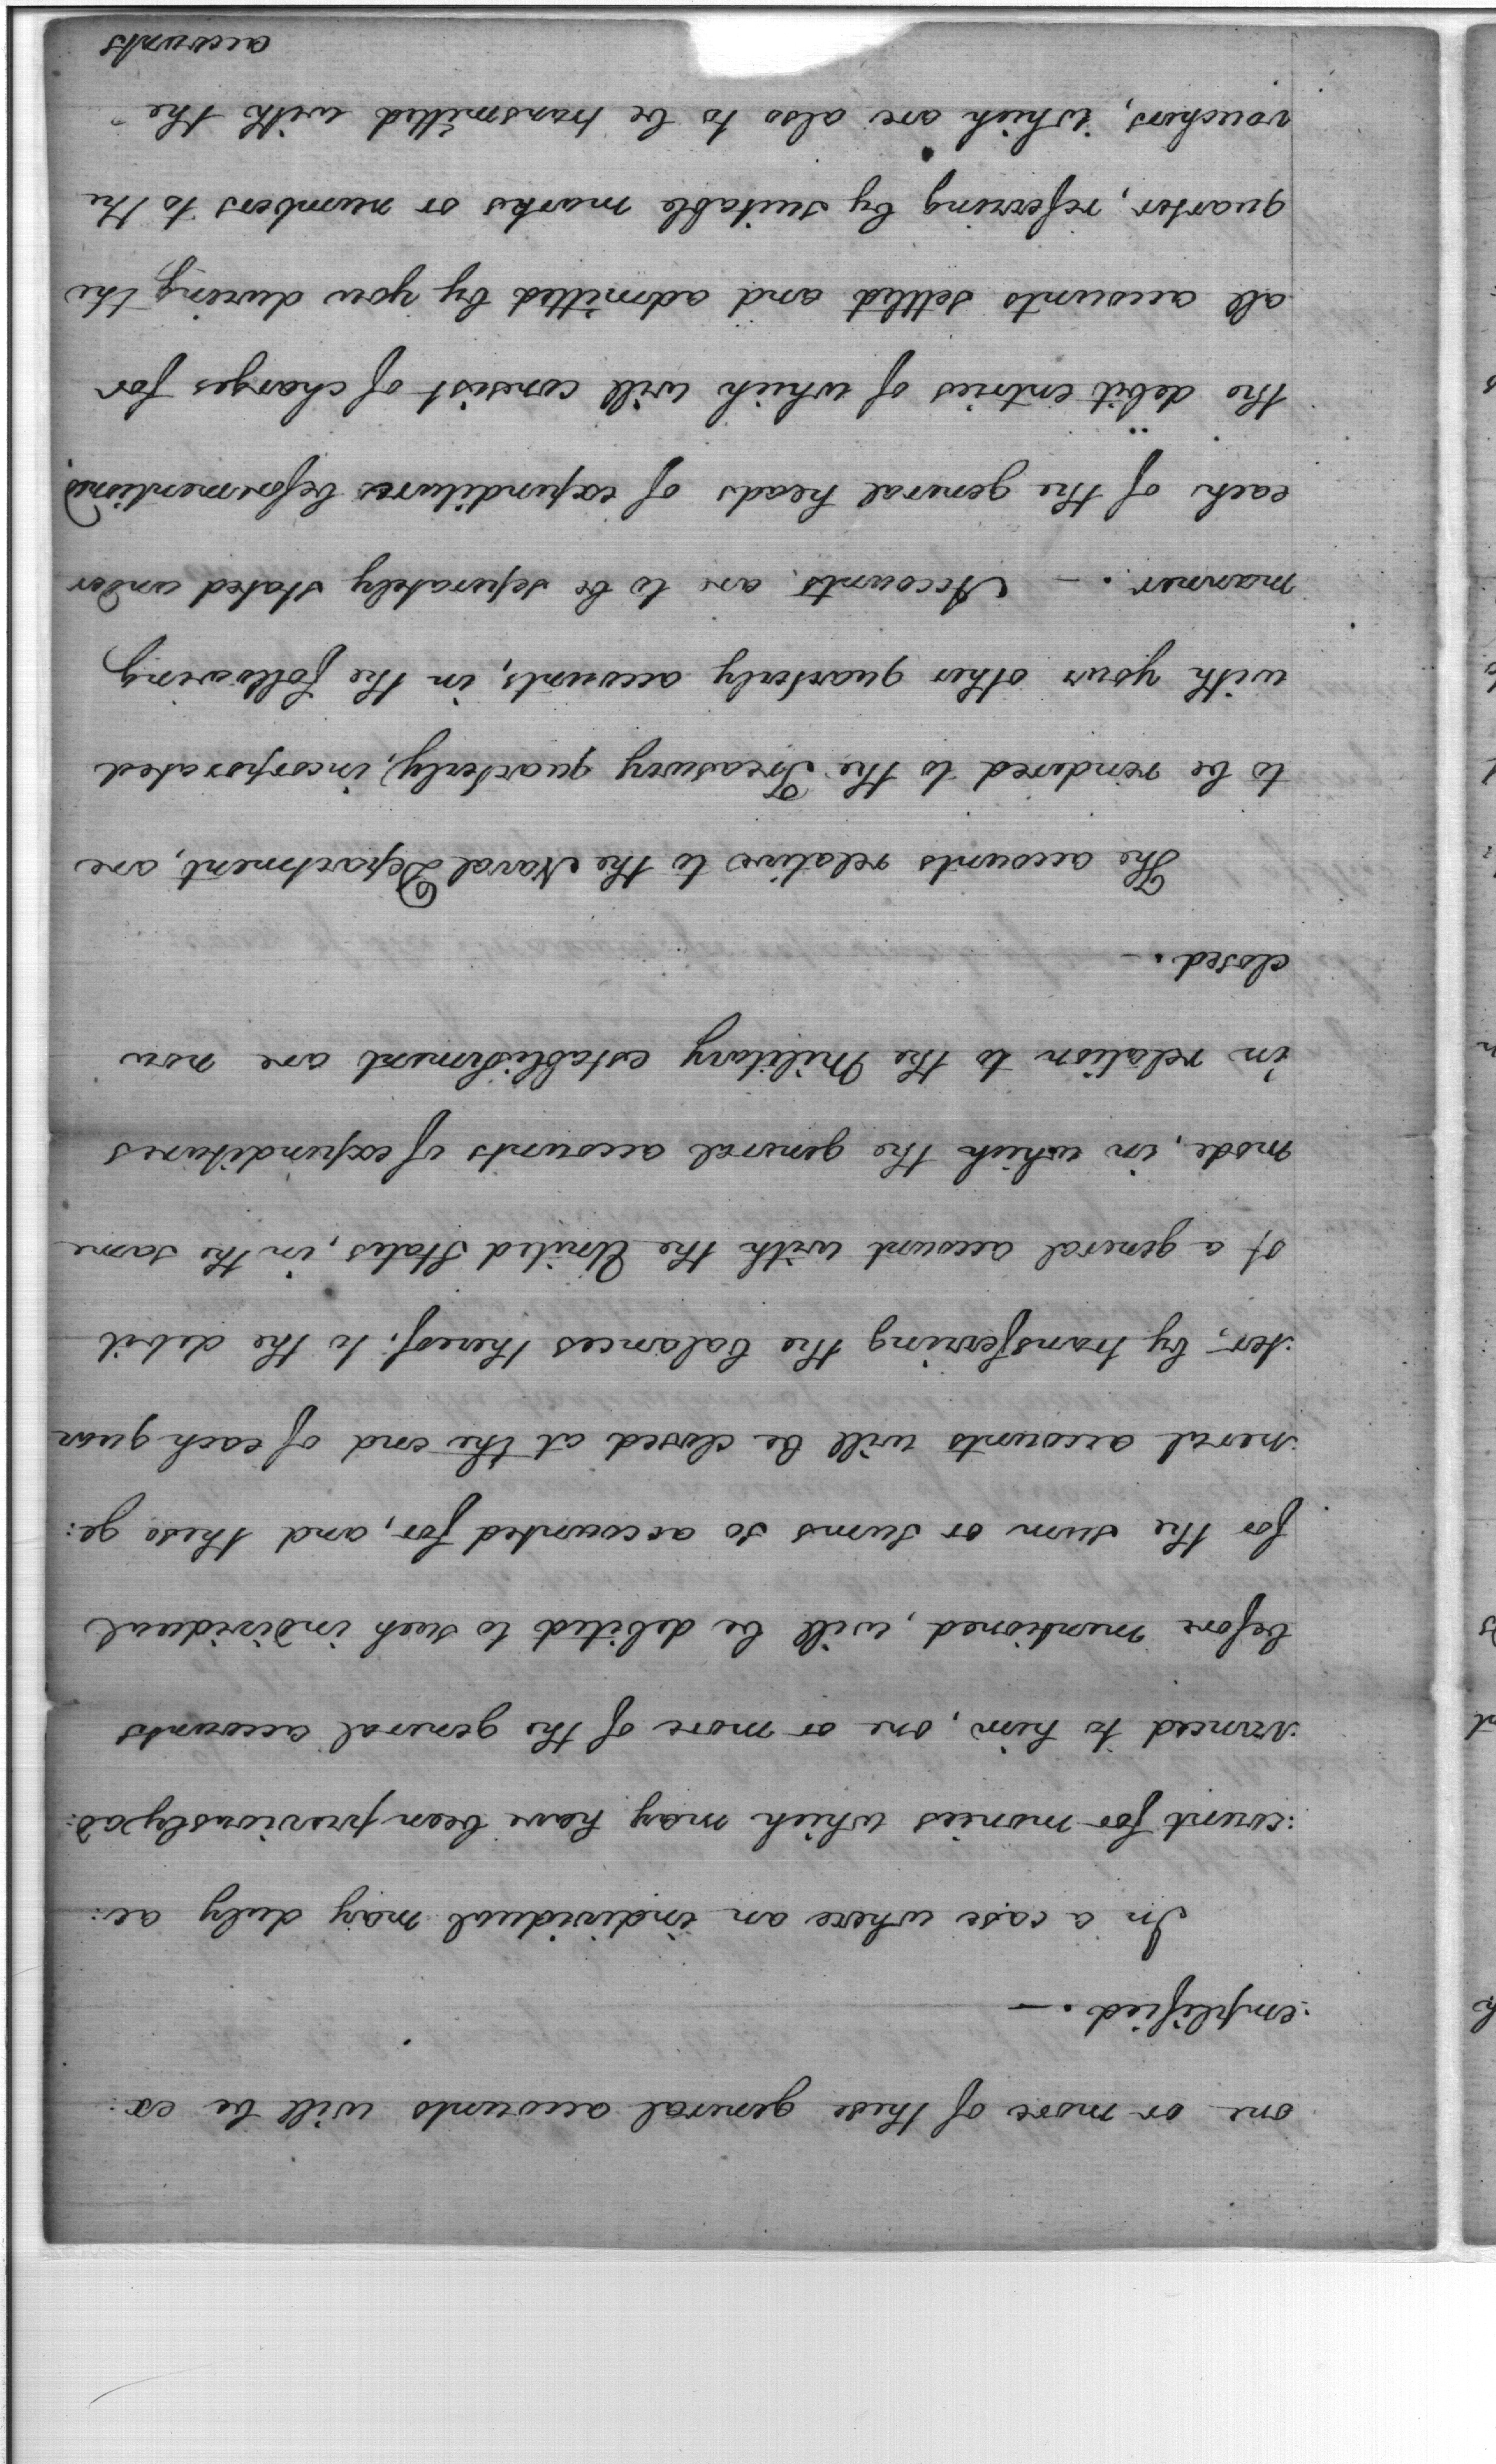 one or more of these general accounts will be ex:
:emplified. —
In a case where an individual may duly ac:
:count for monies which may have been previously ad:
:vanced to him, one or more of the general accounts
before mentioned, will be debited to such individual
for the sum or sums so accounted for, and these ge:
:neral accounts will be closed at the end of each quar
:ter, by transferring the balances thereof, to the debit
of a general account with the United States, in the same
mode, in which the general accounts of expenditures
in relation to the Military establishment are now
closed. —
The accounts relative to the Naval Department, are
to be rendered to the Treasury quarterly, incorporated
with your other quarterly accounts, in the following
manner. — Accounts are to be seperately stated under
each of the general heads of expenditures beforementioned
the debit entries of which will consist of charges for
all accounts settled and admitted by you during the
quarter, referring by suitable marks or numbers to the
vouchers, which are also to be transmitted with the
accounts